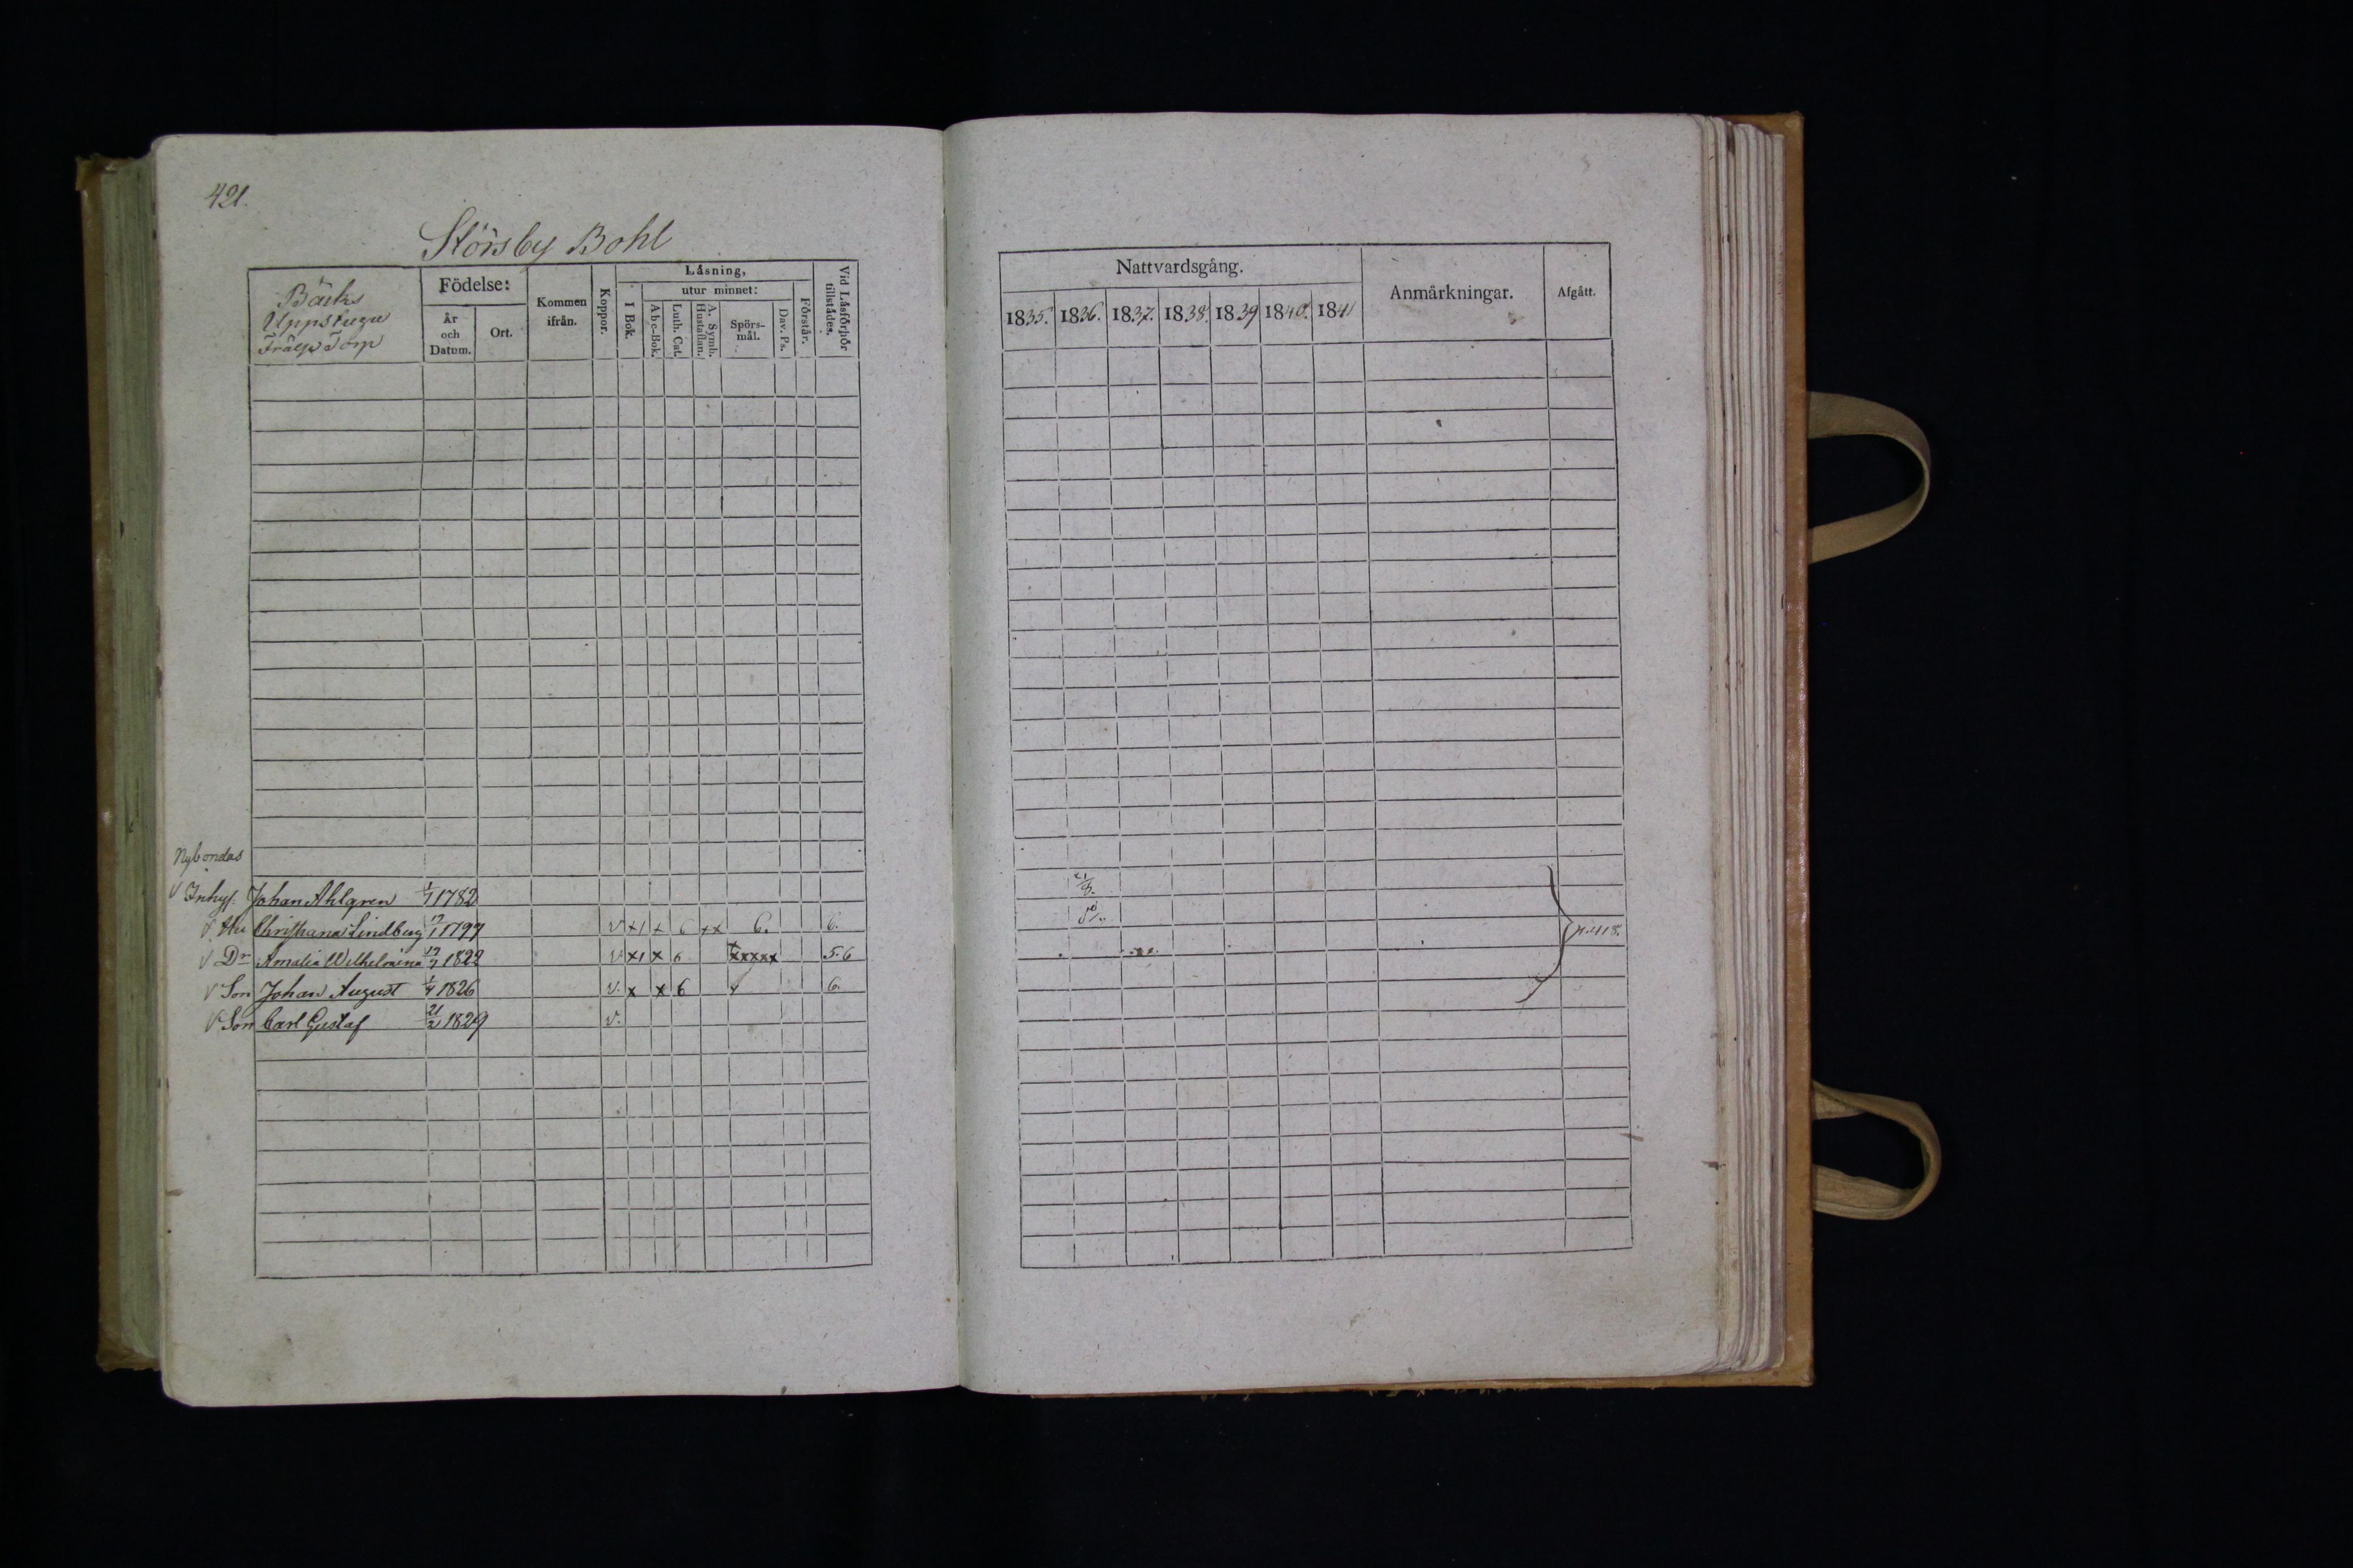 421.
Störsby Bohl
Bäcks
Uppstugu
Frälse Torp
Födelse:
År
och
Datum.
Ort.
Kommen
ifrån.
Koppor.
Läsning,
I Bok.
utur minnet:
Abc-Bok.
Luth. Cat.
A. Symb.
Hustaflan.
Spörs-
mål.
Dav. Ps.
Förstår.
Vid Läsförhör
tillstädes.
Nybondas
V Inhys. Johan Ahlgren 1/1 1782
V. Hu Christiana Lindberg 1799 V + 1 + 6 + x 6. 6.
V Dr Amalia Wilhelmina 1822 V x 1 x 6 xxxxx 5. 6
V Son Johan August 1/4 1826 V. x x 6 6.
V Son Carl Gustaf 21/2 1829 V.
Nattvardsgång.
Anmärkningar.
Afgått.
1835. 1836. 1837. 1838. 1839 1840. 1841
p. 418.